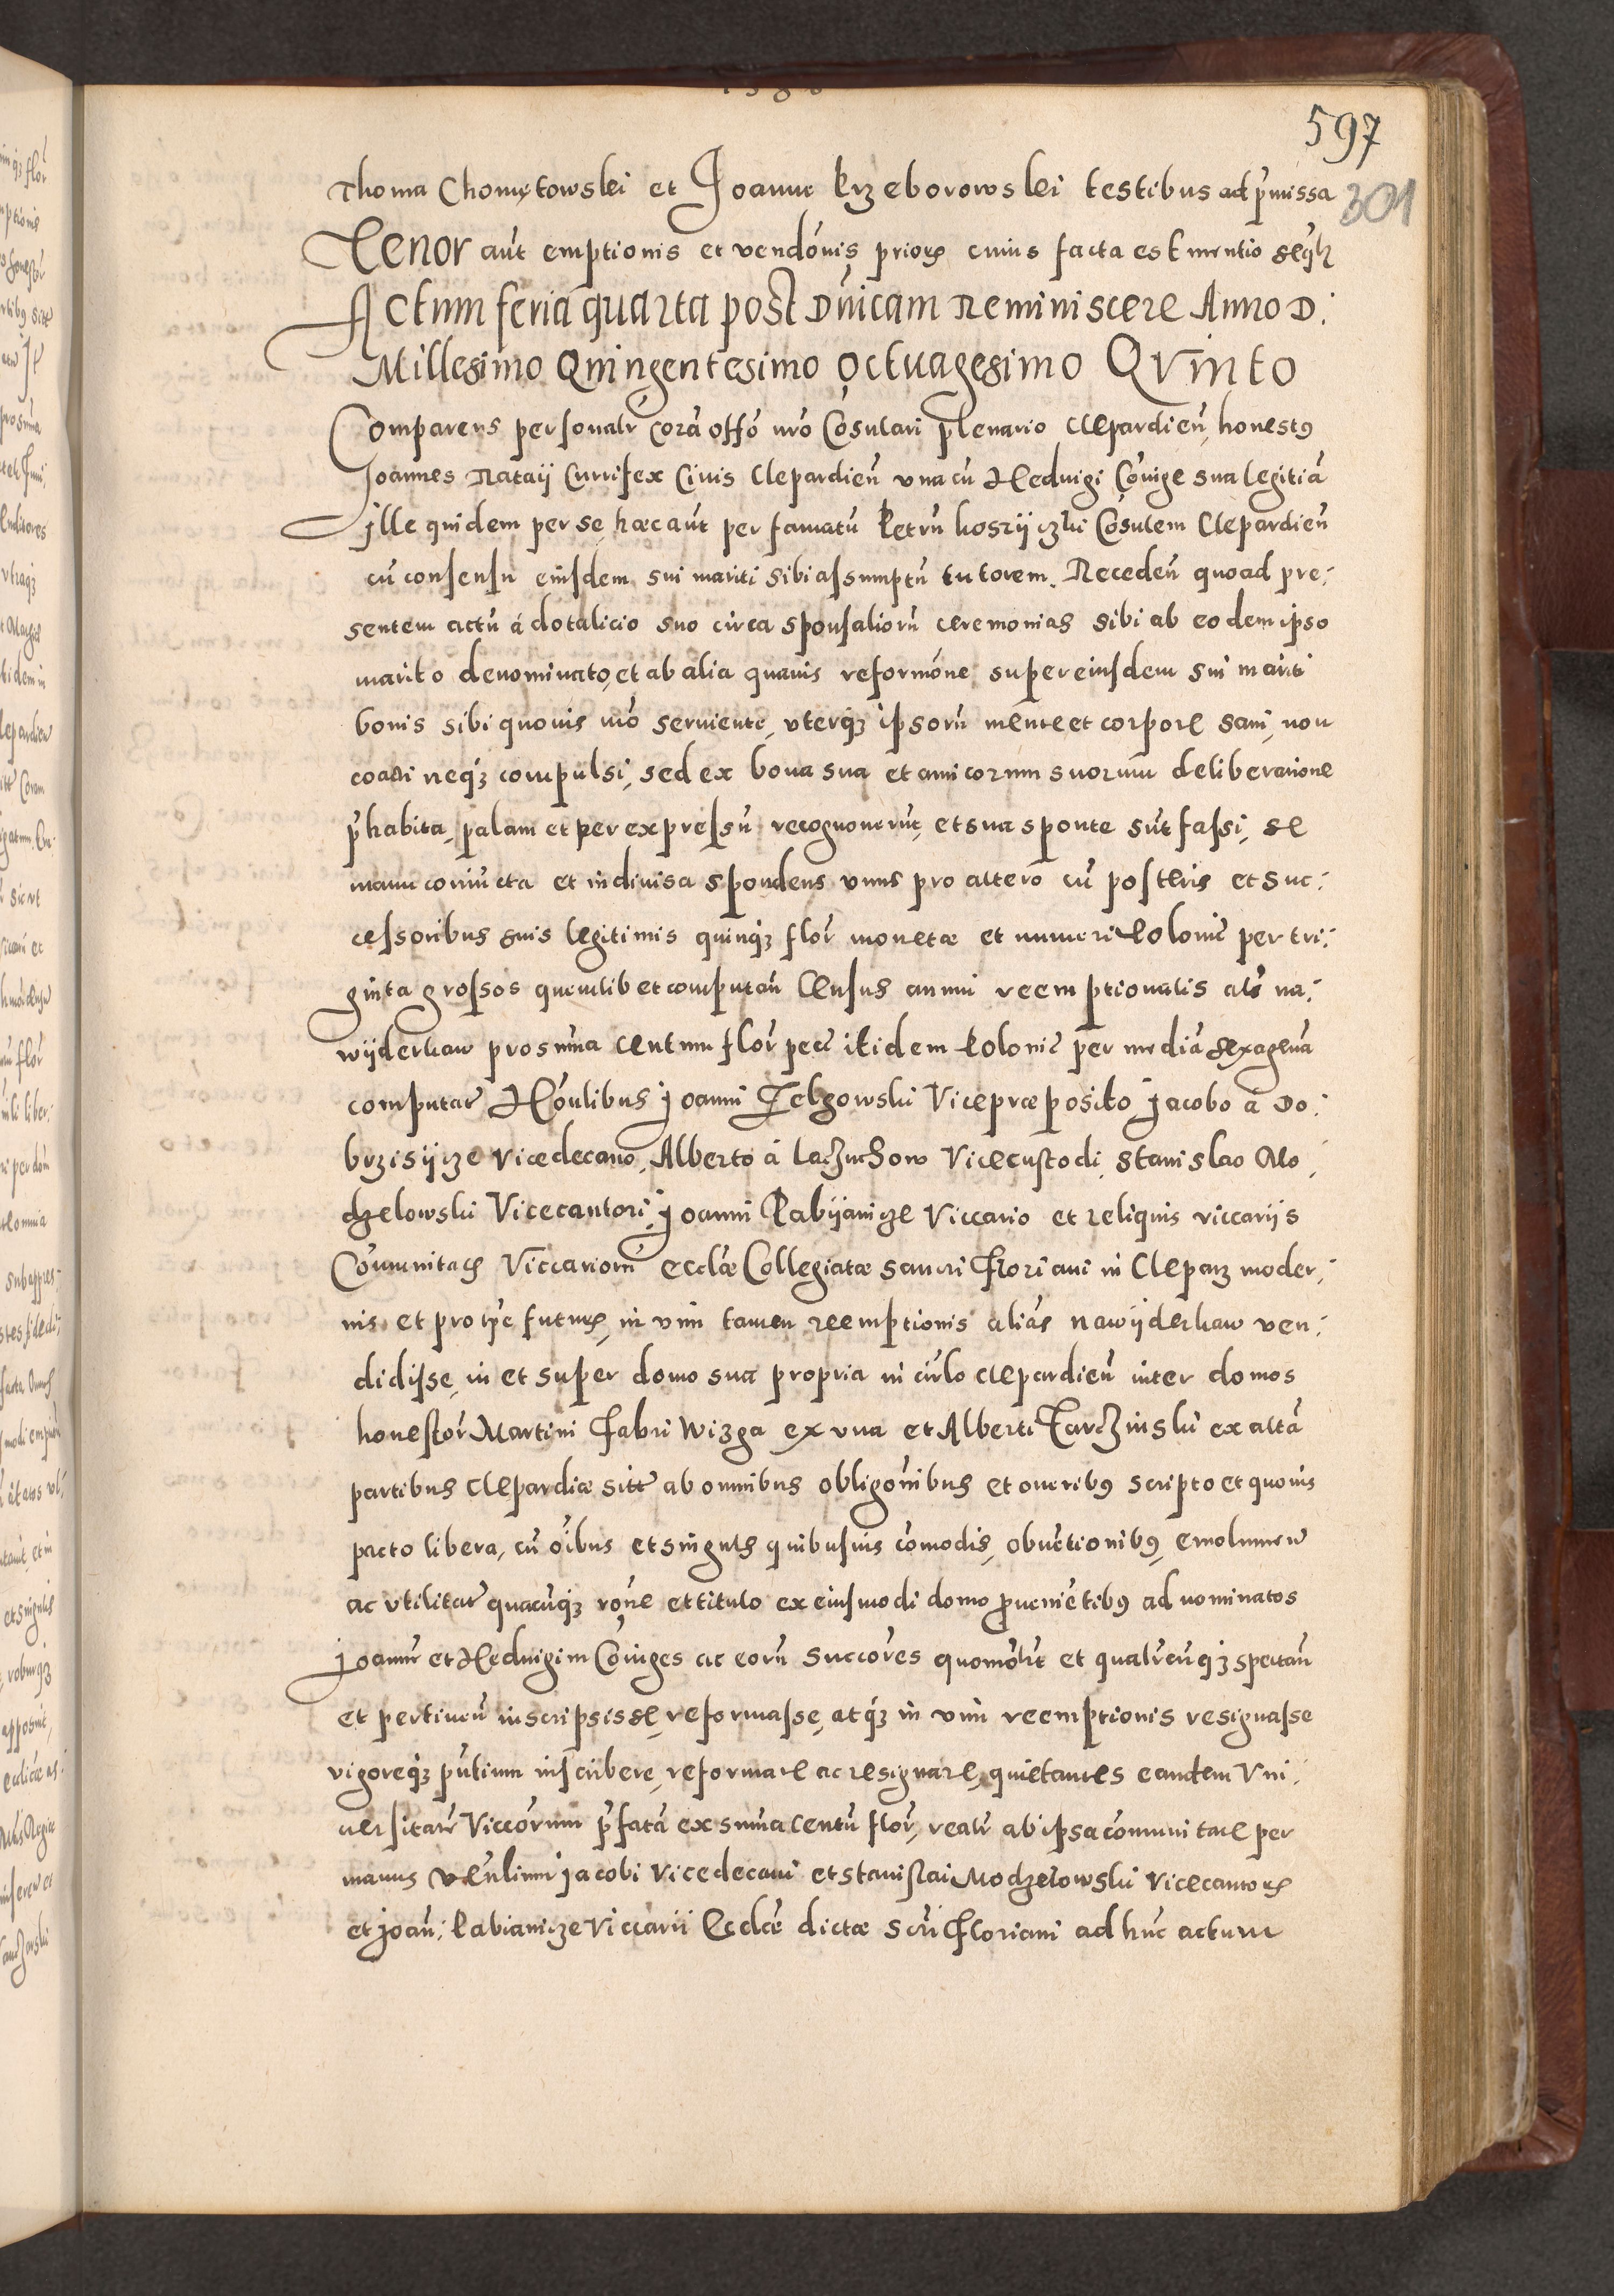 597
301
Thoma Chomętowski et Joanne Krzeborowski testibus ad p̃missa
Tenor aũt emptionis et vendõnis prioris cuius facta est mentio seqr̃
Actum feria quarta post Dñicam Reminiscere Anno D:
Millesimo Quingentesimo Octuagesimo Qvinto
Comparens personalr̃ corã offõ nrõ Cõsulari plenario Clepardieñ, honestꝯ
Joannes Rataij Currifex Civis Clepardieñ vna cũ Hedvigi Cõiuge sua legitiã
Jlle quidem per se, hæc aũt per famatũ Petrũ Koszijczki Cõsulem Clepardieñ
cũ consensu eiusdem sui mariti sibi assumptũ tutorem. Recedeñ quoad pre:
sentem actũ á dotalicio suo circa sponsaliorũ ceremonias sibi ab eodem ipso
marito denominato, et ab alia quavis reformõne super eiusdem sui mariti
bonis sibi quovis mõ serviente, vterqȝ ipsorũ mente et corpore sani, non
coacti neqȝ compulsi, sed ex bona sua et amicorum suorum deliberatione
p̃habita, palam et per expressũ recognoverũt, et sua sponte sũt fassi, se
manu coniũcta et indivisa spondens vnus pro altero cũ posteris et suc:
cessoribus suis legitimis quinqȝ flor̃ monetæ et numeri Poloniĉ per tri:
ginta grossos quemlibet computañ Census annui reemptionalis als̃ na:
wijderkaw pro sum̃a centum flor̃ peĉ itidem Poloniĉ per mediã sexagenã
computat̃ Hõnlibus Joanni Jelgowski Vicepræposito, Jacobo á Do:
brzisijcze Vicedecano, Alberto á Laczuchow Vicecustodi, Stanislao Mo:
dzelowski Vicecantori, Joanni Pabijanicze Viccario et reliquis viccarijs
Cõmunitatis Viccariorũ ecclæ̃ Collegiatæ Sancti Floriani in Cleparz moder:
nis et pro tpẽ futuris, in vim tamen reemptionis aliás nawijderkaw ven:
didisse, in et super domo sua propria in circlo Clepardieñ inter domos
honestor̃ Martini Fabri Wizga ex vna et Alberti Tarczinski ex altã
partibus Clepardiæ sitã ab omnibus obligõnibus et oneribꝯ scripto et quovis
pacto libera, cũ oĩbus et singulis quibusvis cõmodis, obventionibꝯ, emolumeñ
ac vtilitat̃ quacũqȝ rõne et titulo ex eiusmodi domo proveniẽtibꝯ ad nominatos
Joannẽ et Hedvigim Cõiuges ac eorũ succõres quomõlĩt et qualr̃cũqȝ spectañ
et pertineñ inscripsisse, reformasse, atqȝ in vim reemptionis resignasse
vigoreqȝ pñtium inscribere, reformare ac resignare, quietantes eandem Vni:
versitatẽ Viccõrum p̃fatã ex sum̃a centũ flor̃, realr̃ ab ipsa cõmunitate per
manus Veñlium Jacobi Vicedecani et Stanislai Modzelowski Vicecantoris
et Joañ: Pabianicze Viccarii Ecclæ̃ dictæ Scti Floriani ad hũc actum